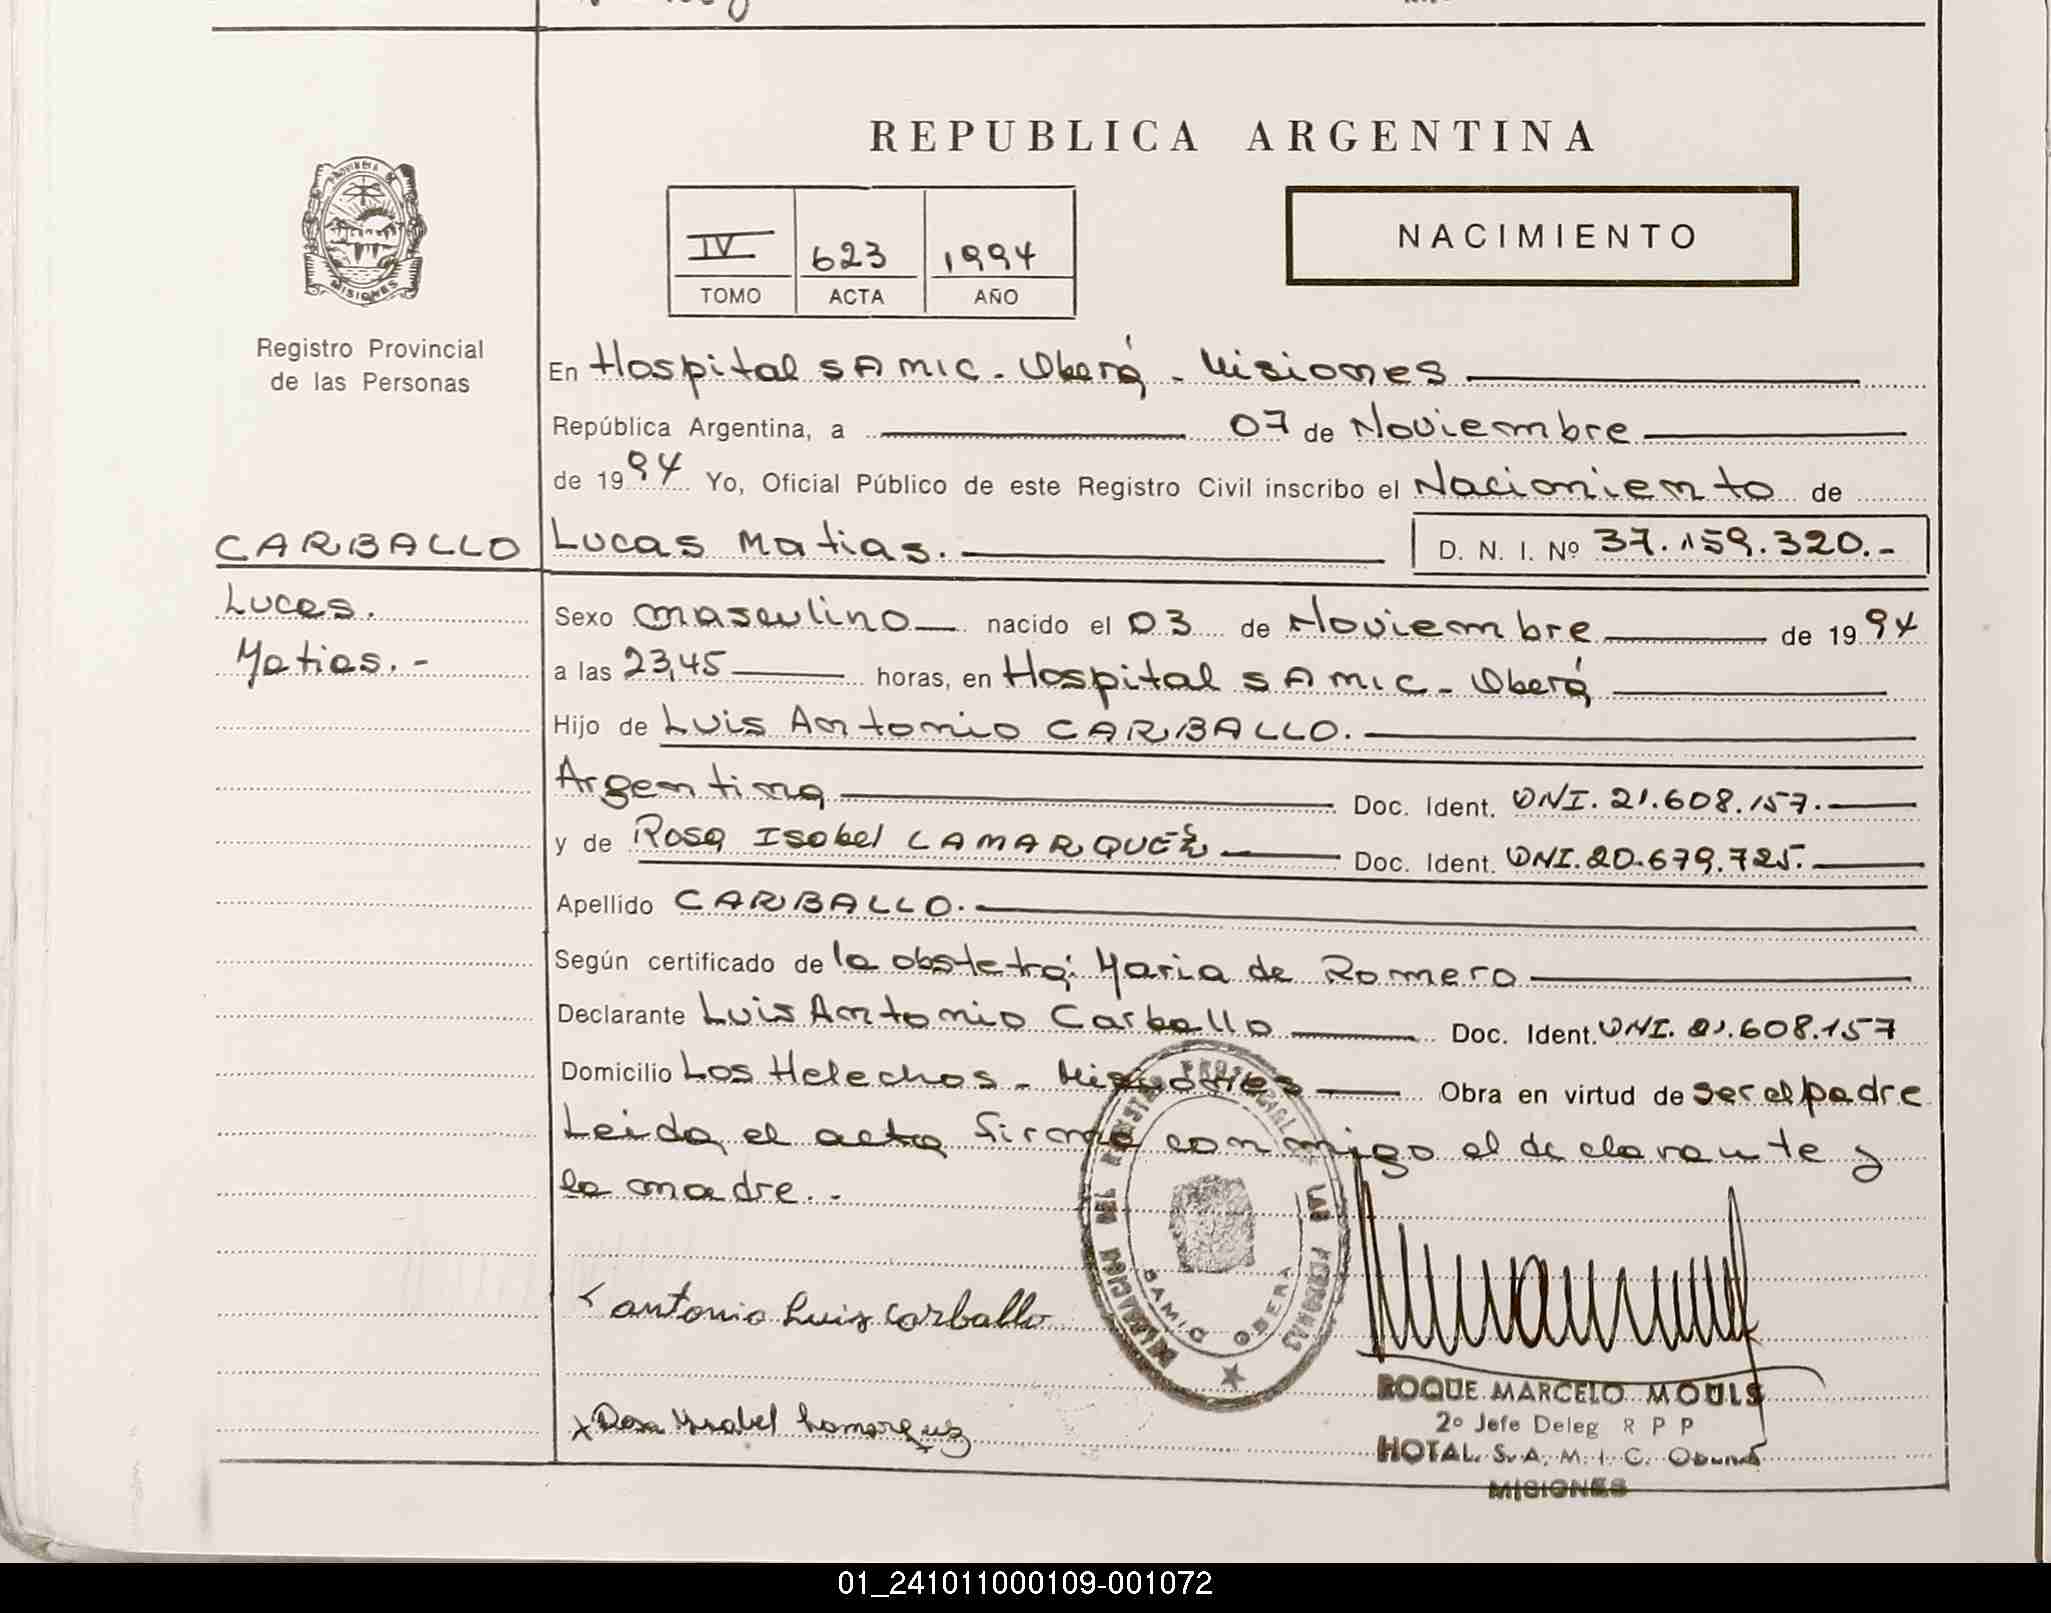 REPUBLICA ARGENTINA
PROVINCIA DE
MISIONES
Registro Provincial
de las Personas
IV 623 1994
TOMO ACTA AÑO
NACIMIENTO
En Hospital SAMIC - Oberá - Misiones
República Argentina, a 07 de Noviembre
de 1994 Yo, Oficial Público de este Registro Civil inscribo el Nacimiento de
CARBALLO Lucas Matias. D. N. I. Nº 37.159.320.-
Lucas.
Matias.-
Sexo masculino nacido el 03 de Noviembre de 1994
a las 23,45 horas, en Hospital SAMIC - Oberá
Hijo de Luis Antonio CARBALLO.
Argentina Doc. Ident. DNI. 21.608.157.
y de Rosa Isabel Doc. Ident. DNI. 20.679.725.
Apellido CARBALLO.
Según certificado de la obstetra: Maria de Romero
Declarante Luis Antonio Carballo Doc. Ident. DNI. 21.608.157
Domicilio Los Helechos - Misiones Obra en virtud de ser el padre
Leida el acta firma conmigo el declarante y
la madre.-
DELEGACION DEL REGISTRO PROVINCIAL DE LAS PERSONAS
SAMIC OBERA
antonio Luis Carballo
x Rosa Ysabel Lamarquez
ROQUE MARCELO MOULS
2º Jefe Deleg R P P
HOTAL. S. A. M. I. C.
MISIONES
01_241011000109-001072